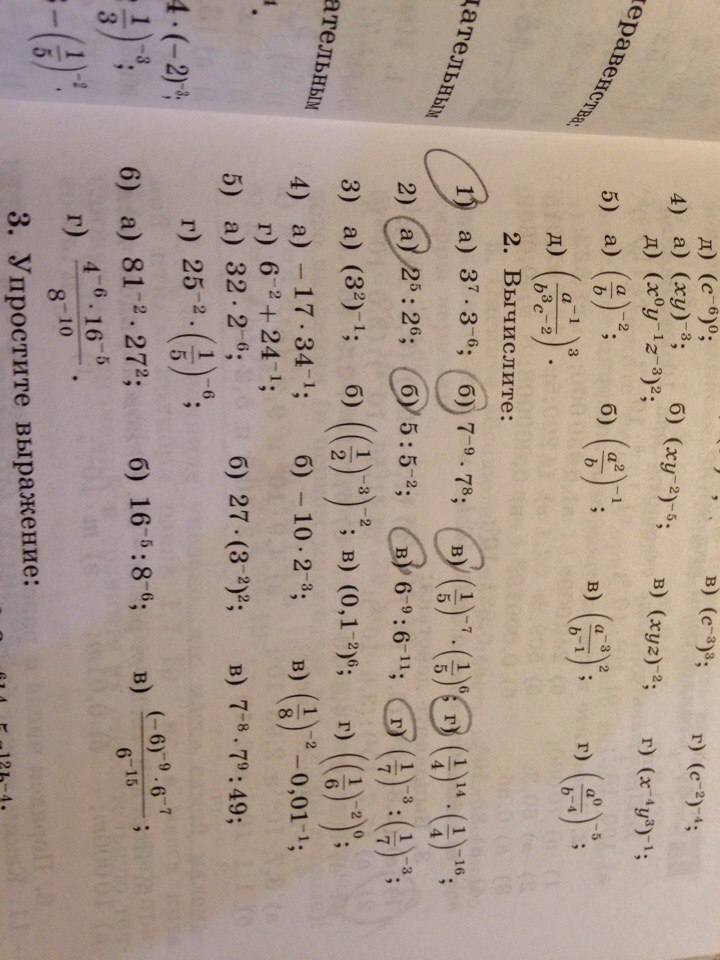 д) (c⁻⁶)⁰; в) (c⁻³)³; г) (c⁻²)⁻⁴;
4) а) (xy)⁻³; б) (xy⁻²)⁻⁵; в) (xyz)⁻²; г) (x⁻⁴y³)⁻¹;
д) (x⁰y⁻¹z⁻³)²;
5) а) (a/b)⁻²; б) (a²/b)⁻¹; в) (a⁻³/b⁻¹)²; г) (a⁰/b⁻⁴)⁻⁵;
д) (a⁻¹/(b³c⁻²))³.
2. Вычислите:
1) а) 3⁷ · 3⁻⁶; б) 7⁻⁹ · 7⁸; в) (1/5)⁻⁷ · (1/5)⁶; г) (1/4)¹⁴ · (1/4)⁻¹⁶;
2) а) 2⁵ : 2⁶; б) 5 : 5⁻²; в) 6⁻⁹ : 6⁻¹¹; г) (1/7)⁻³ : (1/7)⁻³;
3) а) (3²)⁻¹; б) ((1/2)⁻³)⁻²; в) (0,1⁻²)⁶; г) ((1/6)⁻²)⁰;
4) а) −17 · 34⁻¹; б) −10 · 2⁻³; в) (1/8)⁻² − 0,01⁻¹;
г) 6⁻² + 24⁻¹;
5) а) 32 · 2⁻⁶; б) 27 · (3⁻²)²; в) 7⁻⁸ · 7⁹ : 49;
г) 25⁻² · (1/5)⁻⁶;
6) а) 81⁻² · 27²; б) 16⁻⁵ : 8⁻⁶; в) ((−6)⁻⁹ · 6⁻⁷)/6⁻¹⁵;
г) (4⁻⁶ · 16⁻⁵)/8⁻¹⁰.
3. Упростите выражение:
еравенства:
дательным
ательным
4 · (−2)⁻³;
(1/3)⁻³;
− (1/5)⁻².